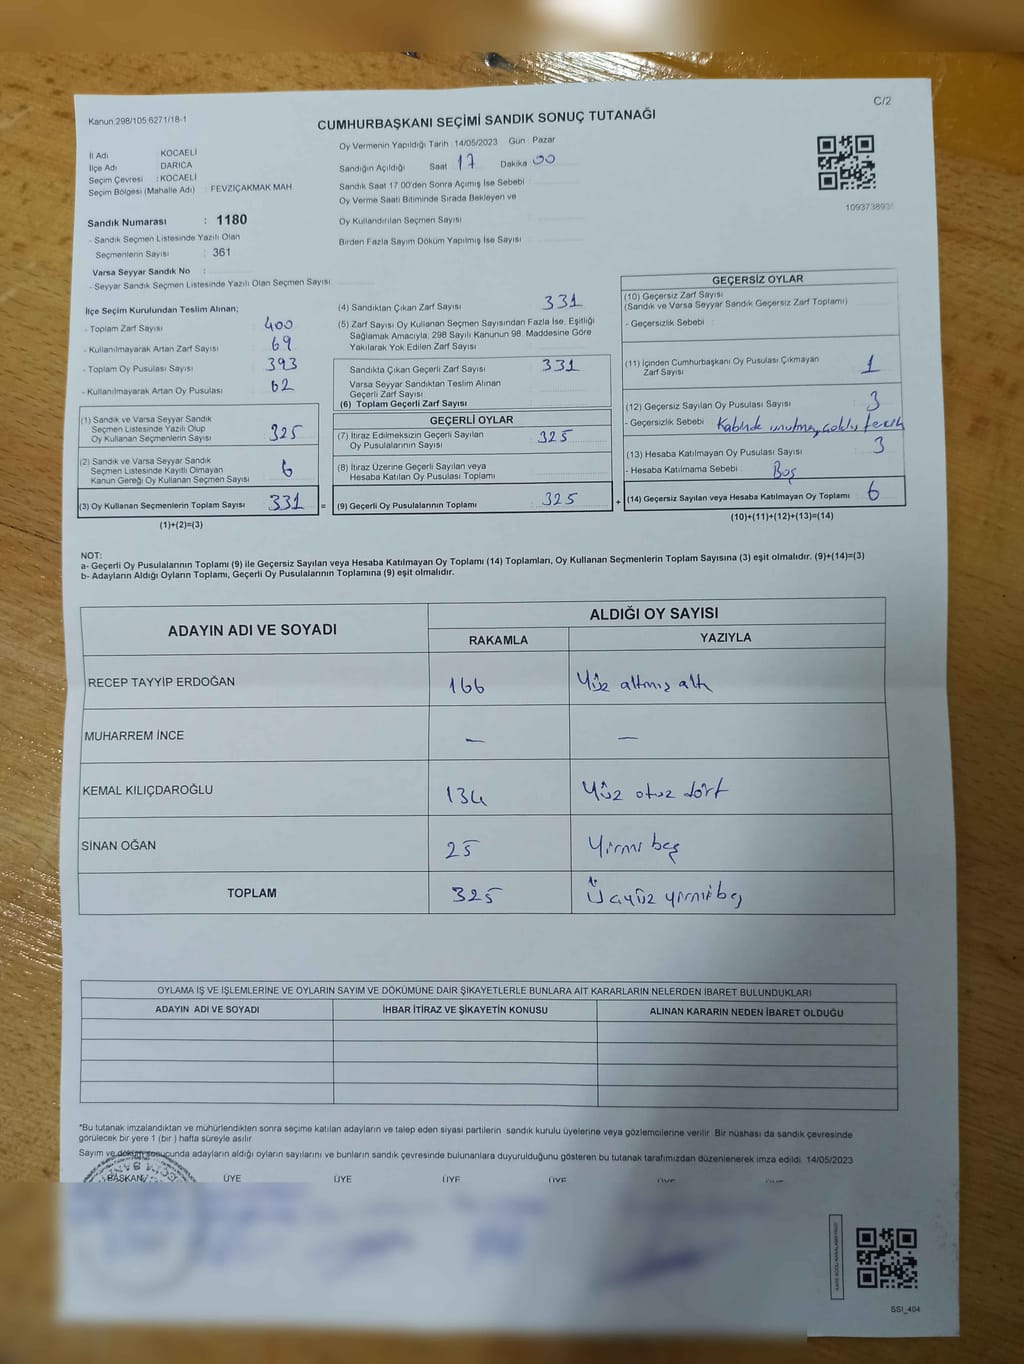 C/2
Kanun 298/105,6271/18-1
CUMHURBAŞKANI SEÇİMİ SANDIK SONUÇ TUTANAĞI
İl Adı KOCAELİ
İlçe Adı DARICA
Seçim Çevresi : KOCAELİ
Seçim Bölgesi (Mahalle Adı) : FEVZİÇAKMAK MAH
Sandık Numarası : 1180
- Sandık Seçmen Listesinde Yazılı Olan
Seçmenlerin Sayısı : 361
Varsa Seyyar Sandık No :
- Seyyar Sandık Seçmen Listesinde Yazılı Olan Seçmen Sayısı
Oy Vermenin Yapıldığı Tarih : 14/05/2023 Gün : Pazar
Sandığın Açıldığı Saat 17 Dakika 00
Sandık Saat 17.00'den Sonra Açımış İse Sebebi
Oy Verme Saati Bitiminde Sırada Bekleyen ve
Oy Kullandırılan Seçmen Sayısı
Birden Fazla Sayım Döküm Yapılmış İse Sayısı
109373893
İlçe Seçim Kurulundan Teslim Alınan;
- Toplam Zarf Sayısı 400
- Kullanılmayarak Artan Zarf Sayısı 69
- Toplam Oy Pusulası Sayısı 393
- Kullanılmayarak Artan Oy Pusulası 62
(1) Sandık ve Varsa Seyyar Sandık
Seçmen Listesinde Yazılı Olup
Oy Kullanan Seçmenlerin Sayısı 325
(2) Sandık ve Varsa Seyyar Sandık
Seçmen Listesinde Kayıtlı Olmayan
Kanun Gereği Oy Kullanan Seçmen Sayısı 6
(3) Oy Kullanan Seçmenlerin Toplam Sayısı 331 =
(1)+(2)=(3)
(4) Sandıktan Çıkan Zarf Sayısı 331
(5) Zarf Sayısı Oy Kullanan Seçmen Sayısından Fazla İse, Eşitliği
Sağlamak Amacıyla, 298 Sayılı Kanunun 98. Maddesine Göre
Yakılarak Yok Edilen Zarf Sayısı
Sandıkta Çıkan Geçerli Zarf Sayısı 331
Varsa Seyyar Sandıktan Teslim Alınan
Geçerli Zarf Sayısı
(6) Toplam Geçerli Zarf Sayısı
GEÇERLİ OYLAR
(7) İtiraz Edilmeksizin Geçerli Sayılan
Oy Pusulalarının Sayısı 325
(8) İtiraz Üzerine Geçerli Sayılan veya
Hesaba Katılan Oy Pusulası Toplamı
(9) Geçerli Oy Pusulalarının Toplamı 325 +
GEÇERSİZ OYLAR
(10) Geçersiz Zarf Sayısı
(Sandık ve Varsa Seyyar Sandık Geçersiz Zarf Toplamı)
- Geçersizlik Sebebi :
(11) İçinden Cumhurbaşkanı Oy Pusulası Çıkmayan
Zarf Sayısı 1
(12) Geçersiz Sayılan Oy Pusulası Sayısı 3
- Geçersizlik Sebebi : Kabinde unutma, çoklu tercih
(13) Hesaba Katılmayan Oy Pusulası Sayısı 3
- Hesaba Katılmama Sebebi Boş
(14) Geçersiz Sayılan veya Hesaba Katılmayan Oy Toplamı 6
(10)+(11)+(12)+(13)=(14)
NOT:
a- Geçerli Oy Pusulalarının Toplamı (9) ile Geçersiz Sayılan veya Hesaba Katılmayan Oy Toplamı (14) Toplamları, Oy Kullanan Seçmenlerin Toplam Sayısına (3) eşit olmalıdır. (9)+(14)=(3)
b- Adayların Aldığı Oyların Toplamı, Geçerli Oy Pusulalarının Toplamına (9) eşit olmalıdır.
ADAYIN ADI VE SOYADI ALDIĞI OY SAYISI
RAKAMLA YAZIYLA
RECEP TAYYİP ERDOĞAN 166 Yüz altmış altı
MUHARREM İNCE — —
KEMAL KILIÇDAROĞLU 134 Yüz otuz dört
SİNAN OĞAN 25 Yirmi beş
TOPLAM 325 Üçyüz yirmi beş
OYLAMA İŞ VE İŞLEMLERİNE VE OYLARIN SAYIM VE DÖKÜMÜNE DAİR ŞİKAYETLERLE BUNLARA AİT KARARLARIN NELERDEN İBARET BULUNDUKLARI
ADAYIN ADI VE SOYADI İHBAR İTİRAZ VE ŞİKAYETİN KONUSU ALINAN KARARIN NEDEN İBARET OLDUĞU
*Bu tutanak imzalandıktan ve mühürlendikten sonra seçime katılan adayların ve talep eden siyasi partilerin sandık kurulu üyelerine veya gözlemcilerine verilir. Bir nüshası da sandık çevresinde
görülecek bir yere 1 (bir ) hafta süreyle asılır.
Sayım ve döküm sonucunda adayların aldığı oyların sayılarını ve bunların sandık çevresinde bulunanlara duyurulduğunu gösteren bu tutanak tarafımızdan düzenlenerek imza edildi. 14/05/2023
BAŞKAN ÜYE ÜYE ÜYE ÜYE ÜYE
SSI_404